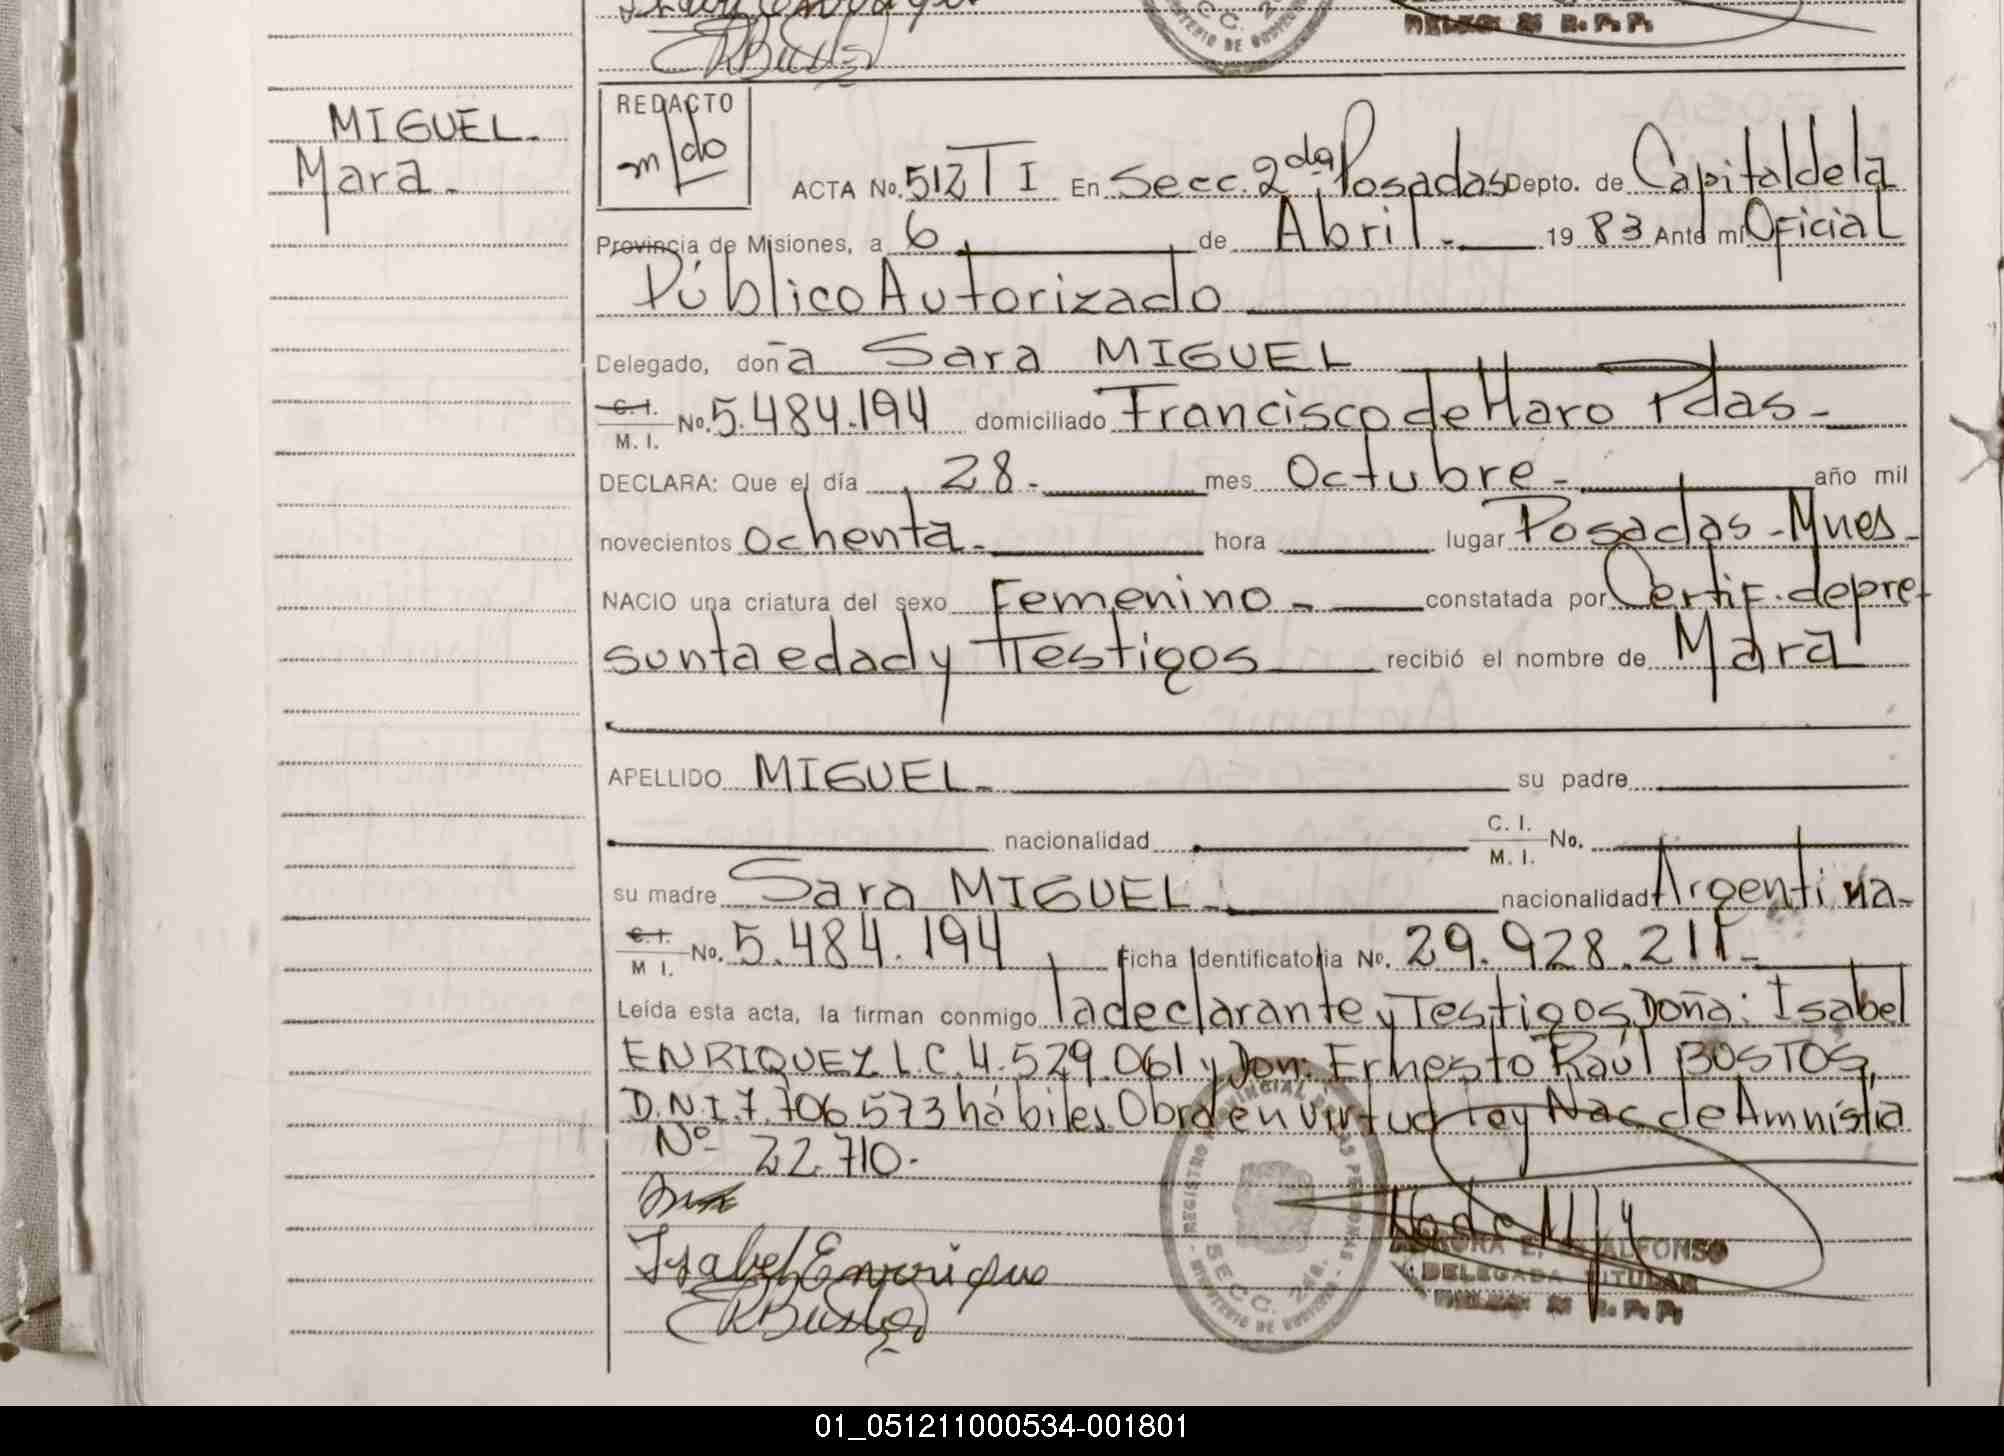 MIGUEL.
Mara.
REDACTO
ACTA No. 512 TI En Secc. 2da. Posadas Depto. de Capital de la
Provincia de Misiones, a 6 de Abril 1983 Ante mí Oficial
Público Autorizado
Delegado, doña Sara MIGUEL
C. I. / M. I. No. 5.484.194 domiciliado Francisco de Haro Pdas-
DECLARA: Que el día 28- mes Octubre- año mil
novecientos ochenta- hora lugar Posadas-Mnes-
NACIO una criatura del sexo Femenino- constatada por Certif. de pre-
sunta edad y Testigos recibió el nombre de Mara
APELLIDO MIGUEL- su padre
nacionalidad C. I. / M. I. No.
su madre Sara MIGUEL- nacionalidad Argentina-
C. I. / M. I. No. 5.484.194 Ficha Identificatoria No. 29.928.211-
Leída esta acta, la firman conmigo la declarante y Testigos Doña: Isabel
ENRIQUEZ L.C. 4.529.061 y Don: Ernesto Raúl BOSTOS,
D.N.I. 7.706.573 hábiles. Obra en virtud ley Nac de Amnistía
Nº 22.710.
Isabel Enrique
SECC. 2da.
ALFONSO
DELEGADA TITULAR
01_051211000534-001801